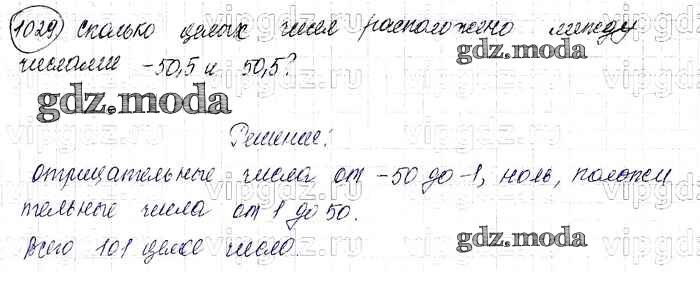 1029) Сколько целых чисел расположено между
gdz.moda
числами -50,5 и 50,5?
gdz.moda
Решение:
отрицательные числа от -50 до -1, ноль, положи
тельные числа от 1 до 50.
Всего 101 целое число.
gdz.moda